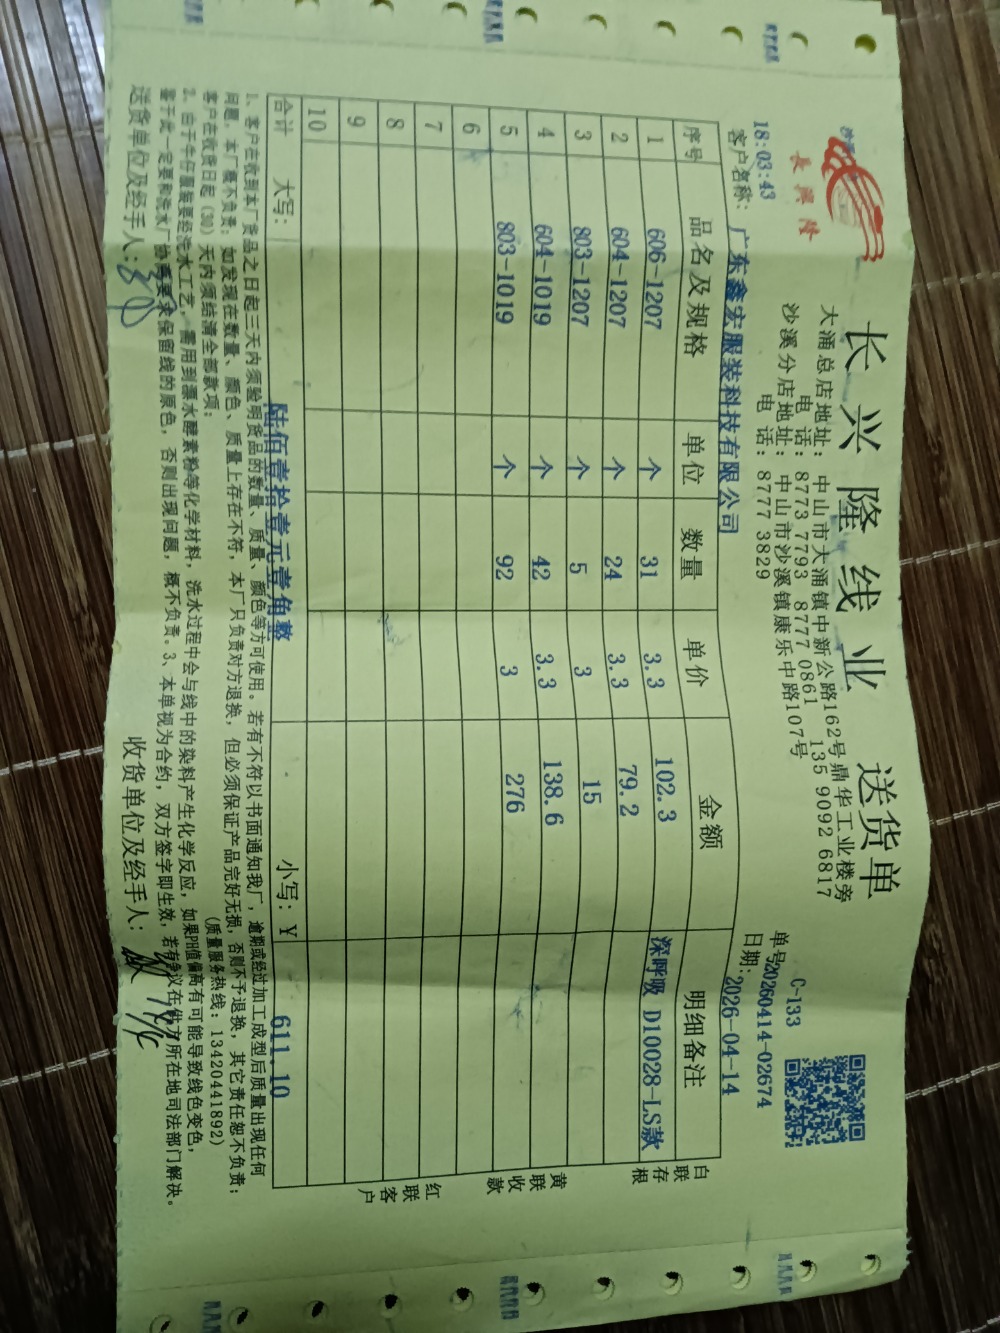 長興隆
长兴隆线业 送货单
大涌总店地址：中山市大涌镇中新公路162号鼎华工业楼旁
电 话：8773 7793 8777 0861 135 9092 6817
沙溪分店地址：中山市沙溪镇康乐中路107号
电 话：8777 3829
C-133
单号20260414-02674
日期：2026-04-14
18:03:43
客户名称：广东鑫宏服装科技有限公司
序号 品名及规格 单位 数量 单价 金额 明细备注
1 606-1207 个 31 3.3 102.3 深呼吸 D10028-LS款
2 604-1207 个 24 3.3 79.2
3 803-1207 个 5 3 15
4 604-1019 个 42 3.3 138.6
5 803-1019 个 92 3 276
6
7
8
9
10
合计 大写：陆佰壹拾壹元壹角整 小写：¥ 611.10
白联存根
黄联收款
红联客户
1、客户在收到本厂货品之日起三天内须验明货品的数量、质量、颜色等方可使用。若有不符以书面通知我厂，逾期或经过加工成型后质量出现任何
问题，本厂概不负责；如发现在数量、颜色、质量上存在不符，本厂只负责对方退换，但必须保证产品完好无损，否则不予退换，其它责任恕不负责；
客户在收货日起（30）天内须结清全部款项； (质量服务热线：13420441892)
2、由于牛仔服装要经洗水工艺，需用到漂水酵素粉等化学材料，洗水过程中会与线中的染料产生化学反应，如果PH值偏高有可能导致线色变色，
鉴于此一定要和洗水厂协商要求保留线的原色，否则出现问题，概不负责。3、本单视为合约，双方签字即生效，若有争议在供方所在地司法部门解决。
送货单位及经手人： 收货单位及经手人：